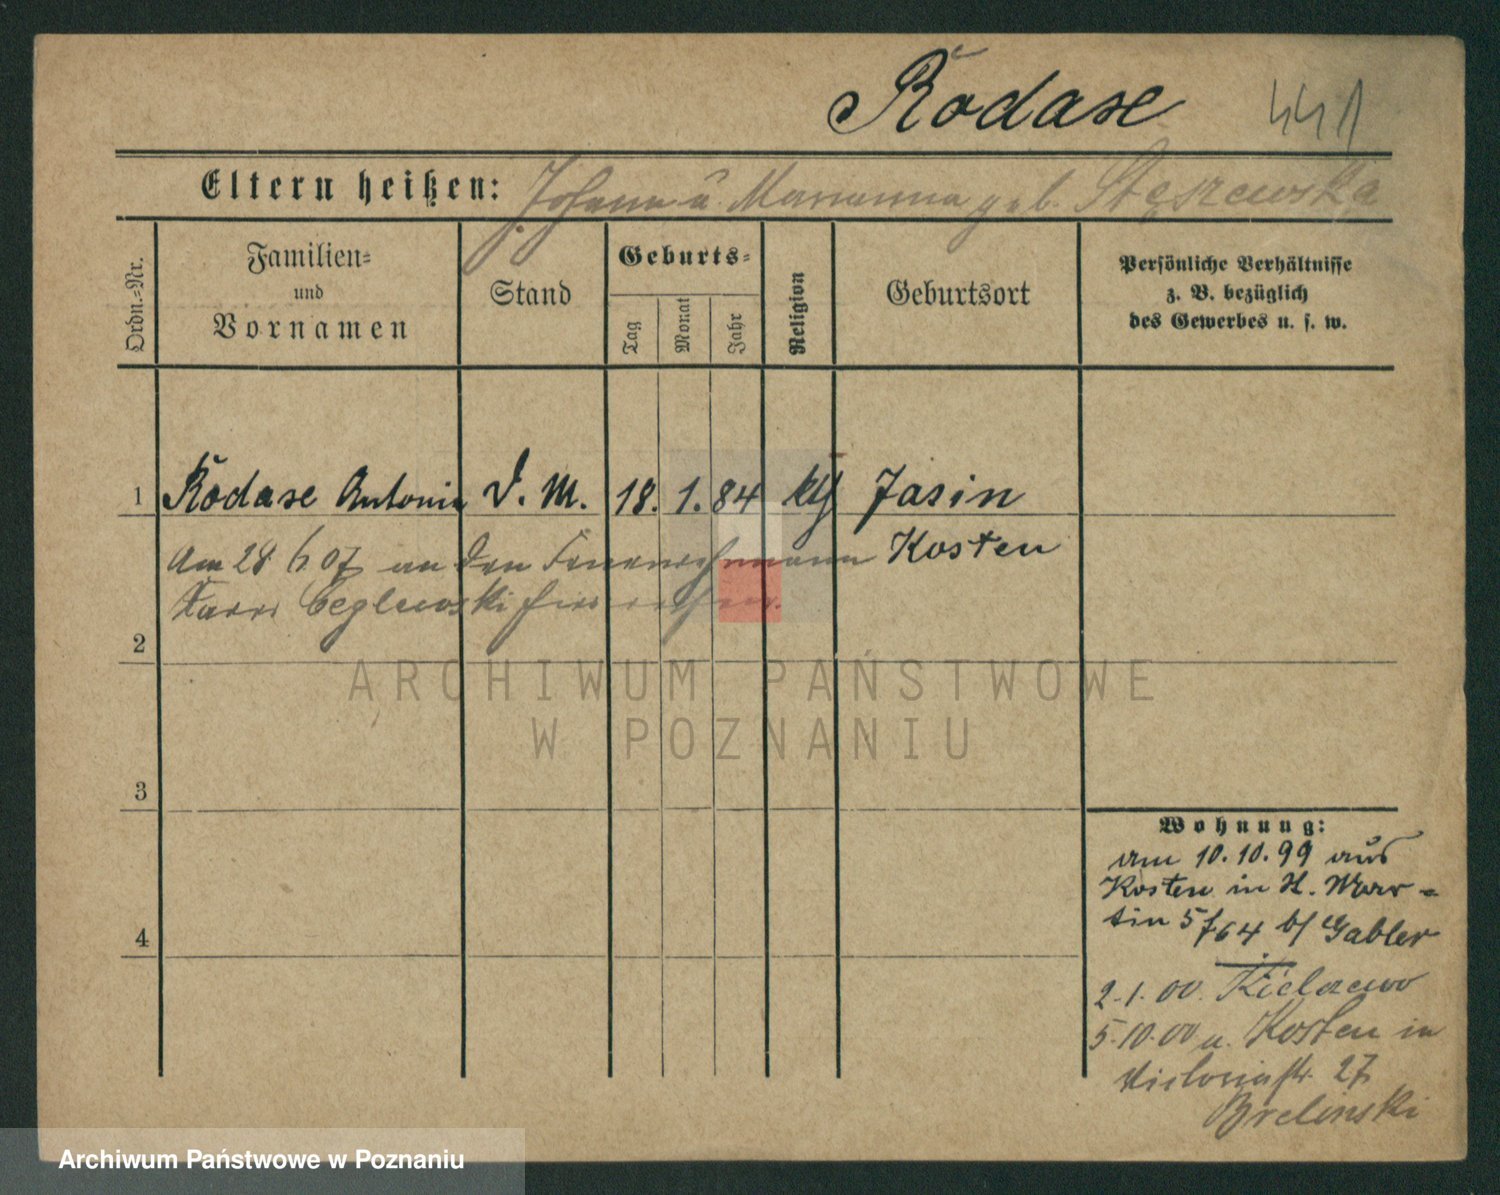 Rodase 441
Eltern heißen: Johann u. Marianna geb. Stęszewska
Ordn.-Nr.
Familien-
und
Vornamen
Stand
Geburts-
Tag
Monat
Jahr
Religion
Geburtsort
Persönliche Verhältnisse
z. B. bezüglich
des Gewerbes u. s. w.
1 Rodase Antonia D. M. 18. 1. 84 kth Jasin
Kosten
Am 28 6 07 an den Feuerwehrmann
Ceglewski
2
3
4
ARCHIWUM PAŃSTWOWE
W POZNANIU
Wohnung:
am 10.10.99 aus
Kosten in St. Mar-
tin 57/64 b/ Gabler
2.1.00. Kielczewo
5.10.00 u. Kosten in
Victoriastr. 27
Brelinski
Archiwum Państwowe w Poznaniu